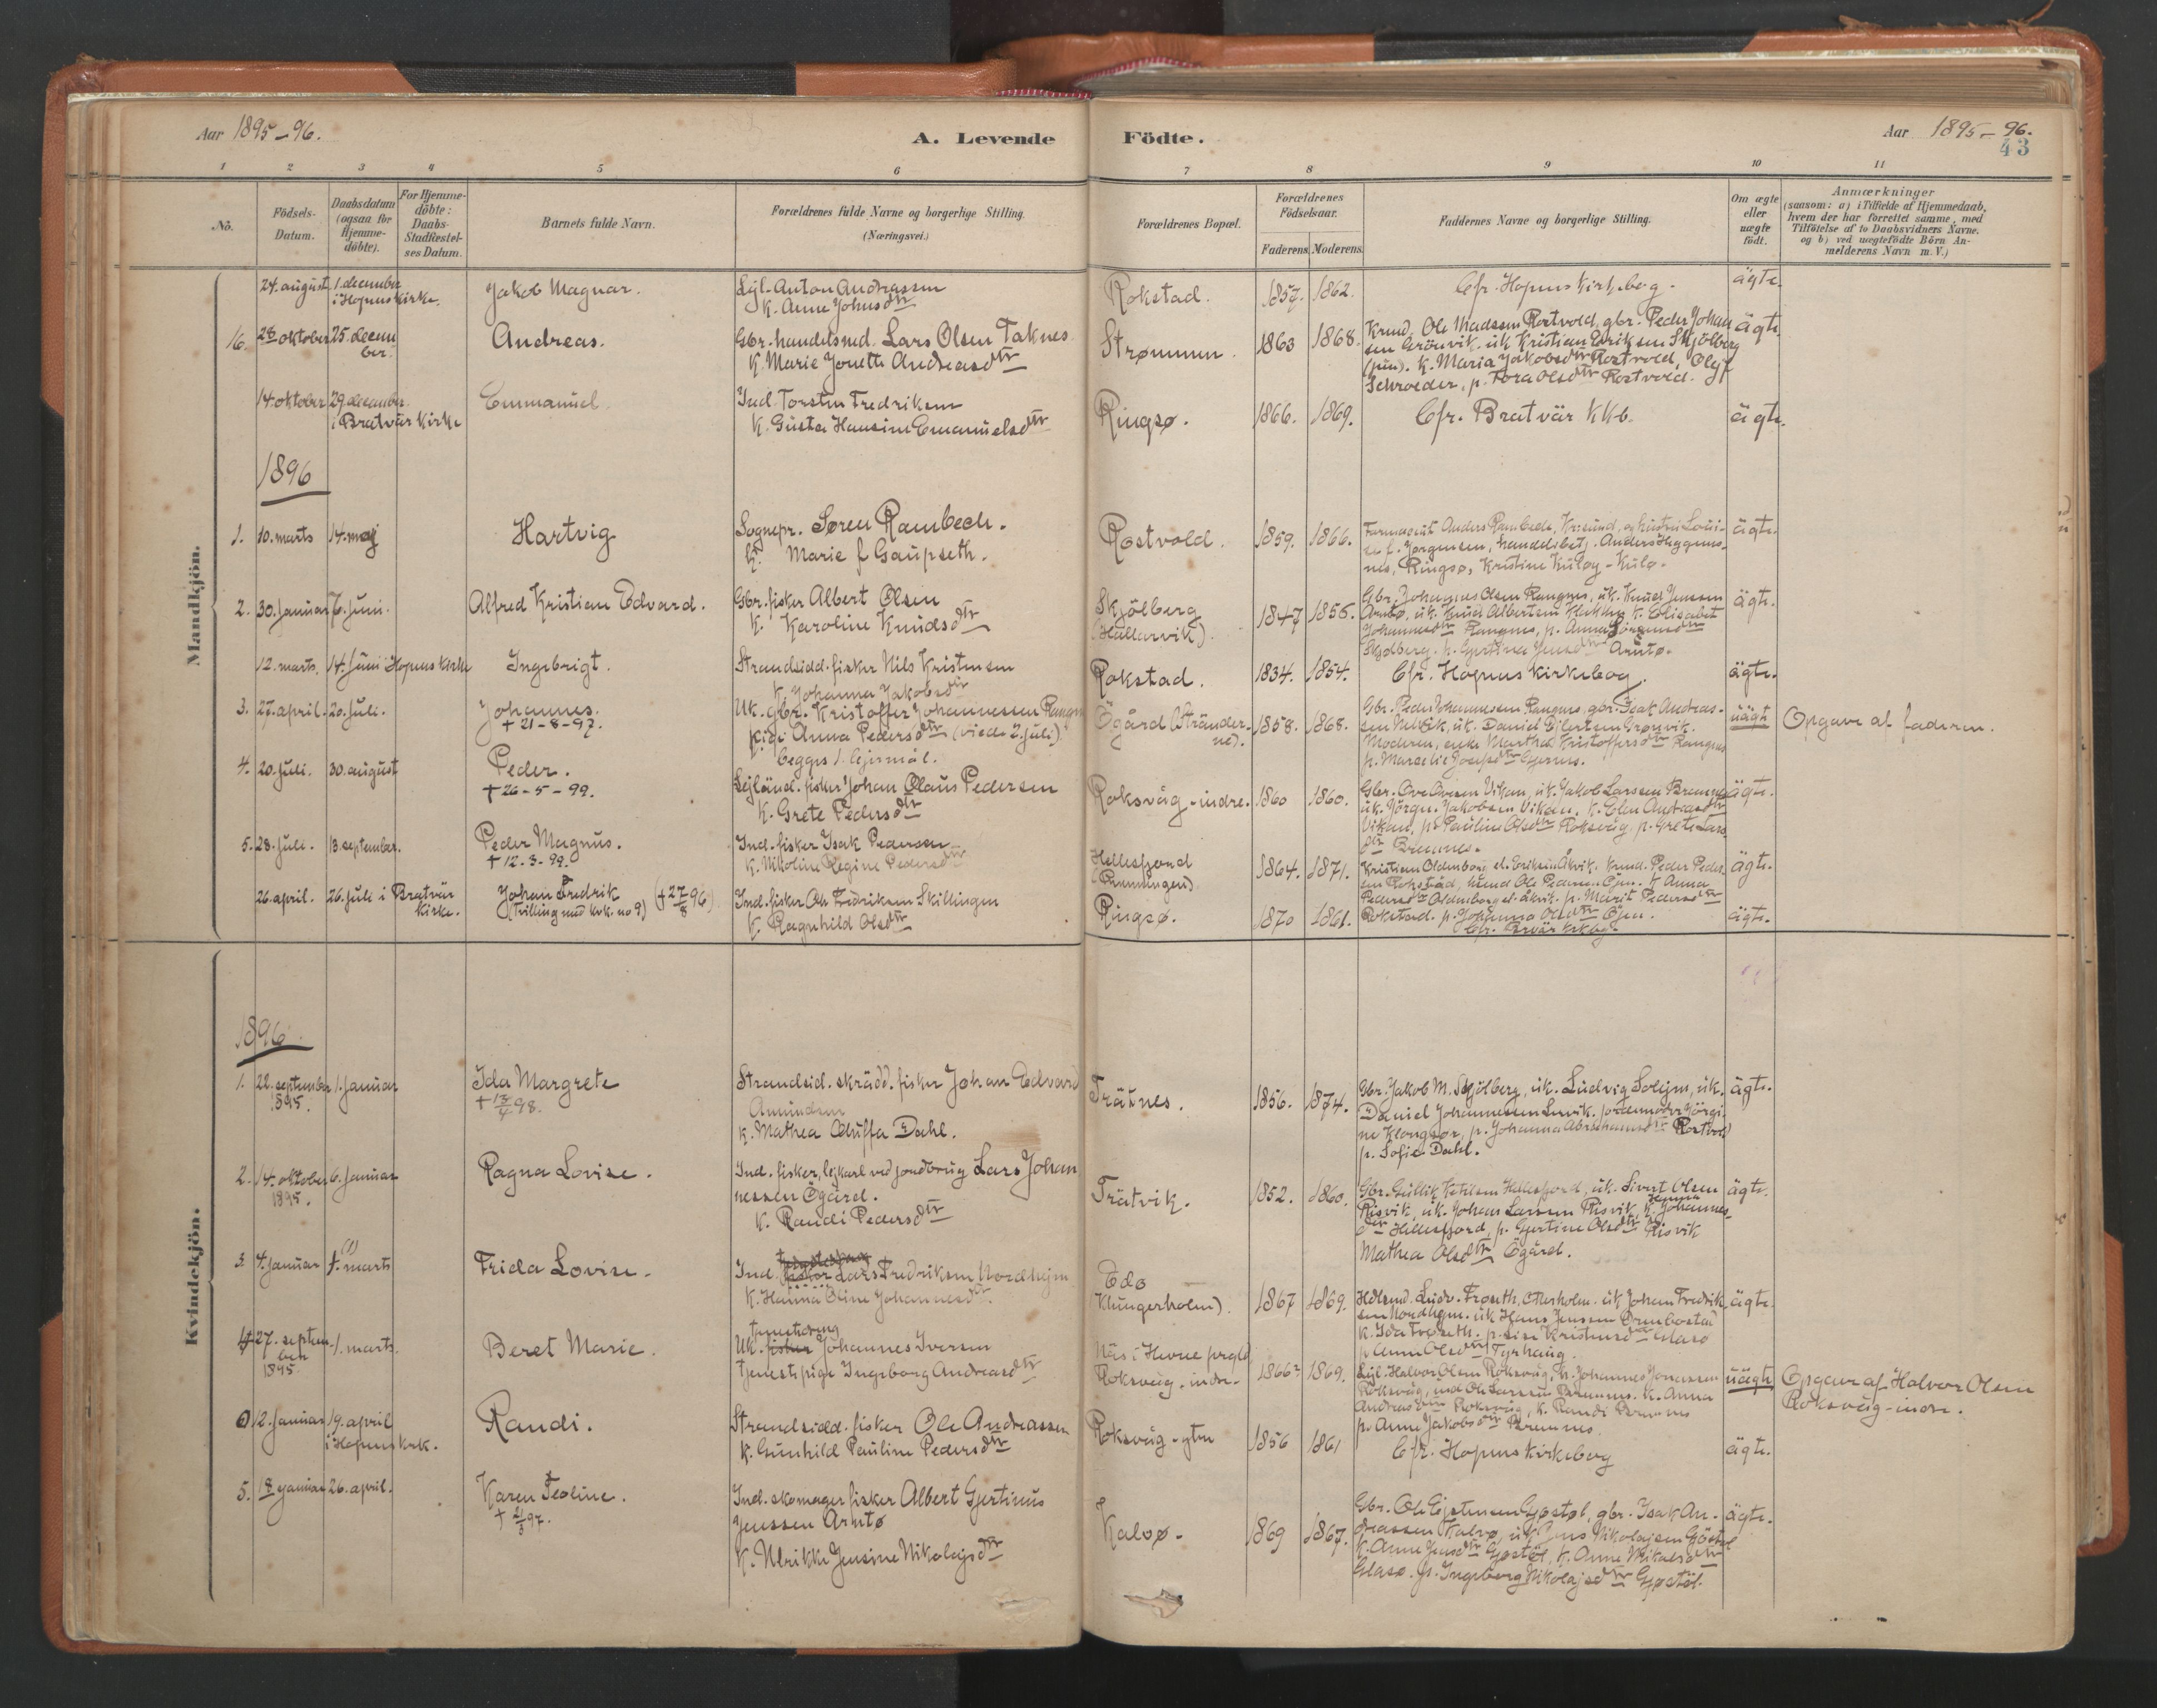 Aar 1895-96.
A. Levende
Födte.
Aar 1895-96.
43
1 2 3 4 5 6 7 8 9 10 11
No.
Födsels-
Datum.
Daabsdatum
(ogsaa for
Hjemme-
döbte).
For Hjemme-
döbte:
Daabs-
Stadfæstel-
ses Datum.
Barnets fulde Navn.
Forældrenes fulde Navne og borgerlige Stilling.
(Næringsvei.)
Forældrenes Bopæl.
Forældrenes
Födselsaar.
Faderens. Moderens.
Faddernes Navne og borgerlige Stilling.
Om ægte
eller
uægte
födt.
Anmærkninger
(saasom: a) i Tilfælde af Hjemmedaab,
hvem der har forrettet samme, med
Tilföielse af to Daabsvidners Navne.
og b) ved uægtefödte Börn An-
melderens Navn m. V.)
Mandkjön.
24. august 1. december
i Hopens kirke.
Jakob Magnar.
Lejl. Anton Andreassen
K. Anne Johnsdtr
Rokstad.
1857. 1862.
Cfr. Hopens Kirkebog.
ägte.
16. 28 oktober 25. decem
ber.
Andreas.
Gbr. handelsmd. Lars Olsen Taknes
K. Marie Jonette Andreasdtr
Strømmen.
1863 1868.
Krmd. Ole Madssen Rostvold, gbr. Peder Johan
sen Grönvik. uk Kristian Eriksen Skjölberg
K. Maria Jakobsdtr Rostvold, Olga
Schroeder, p. Tora Olsdtr Rostvold.
ägte
14. oktober 29. december
i Bratvär kirke
Emmanuel.
Ind. Torsten Fredriksen
K. Gusta Hansine Emanuelsdtr
Ringsø.
1866. 1869.
Cfr. Bratvär KKb.
ägte.
1896
1. 10. marts 14. maj
Hartvig
Sognepr. Søren Rambech.
H. Marie f Gaupseth.
Rostvold.
1859. 1866.
Farmaceut Anders Rambech, Krsund, og hustru Loui-
se f. Jørgensen, handelsbetj. Anders Hyggens-
nes, Ringsø, Kristine Kuløy - Kulø.
ägte.
2. 30. januar 7. juni.
Alfred Kristian Edvard.
Gbr. fisker Albert Olsen
K. Karoline Knudsdtr
Skjölberg
(Hallarvik).
1847 1855.
Gbr. Johannes Olsen Rangnes, uk. Knud Jenssen
Arntø, uk. Knud Albertsen K. Elisabet
Johannesdtr Rangnes, p. Anna
Skjölberg. p. Gjertina Jensdtr Arntø.
ägte.
12. marts. 14. juni Hopens kirke
Ingebrigt.
Strandsidd. fisker Nils Kristensen
K. Johanna Jakobsdtr
Rokstad.
1834. 1854.
Cfr. Hopens kirkebog.
ägte.
3. 27. april. 20. juli.
Johannes.
+ 21-8-97.
Uk. gbr. Kristoffer Johannessen Rangn
pige Anna Pedersdtr (viede 2. juli).
begges 1. lejermål.
Ögård (Stränder-
ne).
1858. 1868.
Gbr. Peder Johannessen Rangnes, gbr. Isak Andreas-
sen uk. Daniel Ejlertsen Grønvik.
Moderen, enke Marthe Kristoffersdtr Rangnes
p. Marselie Josefsdtr
uägte
Opgave af faderen.
4. 20. juli. 30. august
Peder.
+ 26-5-99.
Lejländ. fisker Johan Olaus Pedersen
K. Grete Pedersdtr
Roksvåg - indre.
1860 1860.
Gbr. Ove Ovesen Vikan, uk. Jakob Larssen Bremnes
uk. Jörgen Jakobsen Vikan, K. Elen Andreasdtr
Vikan, p. Pauline Olsdtr Roksvåg, p. Grete Lars
dtr Bremnes.
ägte.
5. 28. juli. 13. september.
Peder Magnus.
+ 12-3-99.
Ind. fisker Isak Pedersen
K. Nikoline Regine Pedersdtr
Hellesfjord
1864. 1871.
Kristian Oldenborg el. Eriksen Åkvik, krmd. Peder Peder
sen Rokstad, krmd Ole Pedersen Öjen. K Anna
Pedersdtr Oldenborg el. Åkvik. p. Marit Pedersdtr
Rokstad. p. Johanna Olsdtr Öjen.
ägte.
26. april. 26. juli i Bratvär
kirke.
Johan Fredrik
(Tvilling med kvk. no 9) (+ 27/8 96)
Ind. fisker Ole Fredriksen Skillingen
K. Ragnhild Olsdtr
Ringsø.
1870 1861.
Cfr. Brvär kirkbg.
ägte.
Kvindekjön.
1896.
1. 22. september
1895.
1. januar
Ida Margrete
+ 13/4 98.
Strandsid. skrädd. fisker Johan Edvard
Amundsen
K. Mathea Oluffa Dahl.
Trätnes.
1856. 1874.
Gbr. Jakob M. Skjölberg, uk. Ludvig Solejm, uk.
Daniel Johannessen Lervik. jordemoder Jörgi-
ne p. Johanna Abrahamsdtr Rostvold
p. Sofie Dahl.
ägte.
2. 14. oktober
1895.
6. januar
Ragna Lovise.
Ind. fisker, lejkarl ved jordbrug Lars Johan
nessen Ögård.
K. Randi Pedersdtr
Trätvik.
1852. 1860.
Gbr. Gullik Ketilsen Hellesfjord, uk. Sivert Olsen
Risvik, uk. Johan Larssen Risvik, K. Johannes-
dtr Hellesfjord, p. Gjertine Olsdtr Risvik
Mathea Olsdtr Ögård.
ägte.
3. 4. januar 1. marts
Frida Lovise.
Ind. fisker Lars Fredriksen Nordhejm
K. Hanna Oline Johannesdtr.
Edø
(Klungerholm).
1867 1869.
Ludv. Froseth, uk Johan Fredrik
sen Nordhejm. uk Hans Jenssen Ormbostad
K. Ida Froseth. p. Lise Kristensdtr Glasø
p. Anne Olsdtr Tyrhaug.
ägte.
4. 27. septem
ber
1895
1. marts.
Beret Marie.
tjenestedreng
Uk. fisker Johannes Iversen
tjenestpige Ingeborg Andreasdtr
Näs i Hevne prgld
Roksvåg - indre.
1866? 1869.
Lejl. Halvor Olsen Roksvåg, Johannes Jonassen
Roksvåg, ind Ole Larssen Bremnes. K. Anna
Andreasdtr Roksvåg, K. Randi Bremnes
p. Anne Jakobsdtr Bremnes.
uägte
Opgave af Halvor Olsen
Roksvåg - indre.
12. januar 19. april
i Hopens kirk.
Randi.
Strandsidd. fisker Ole Andreassen
K. Gunhild Pauline Pedersdtr
Roksvåg - ytre
1856 1861
Cfr. Hopens kirkebog
ägte.
5. 18 januar 26. april.
Karen Teoline.
+ 2/3 97.
Ind. skomager fisker Albert Gjertinus
Jenssen Arntø
K. Ulrikke Jensine Nikolajsdtr
Kalvø.
1869 1867.
Gbr. Ole Ejstensen Gjøstøl, gbr. Isak An-
dreassen Kalvø, uk Jens Nikolajsen Gjøstøl
K. Anne Jensdtr Gjøstøl, K. Anne Mikalsdtr
Glasø. p. Ingeborg Nikolajsdtr Gjøstøl.
ägte.